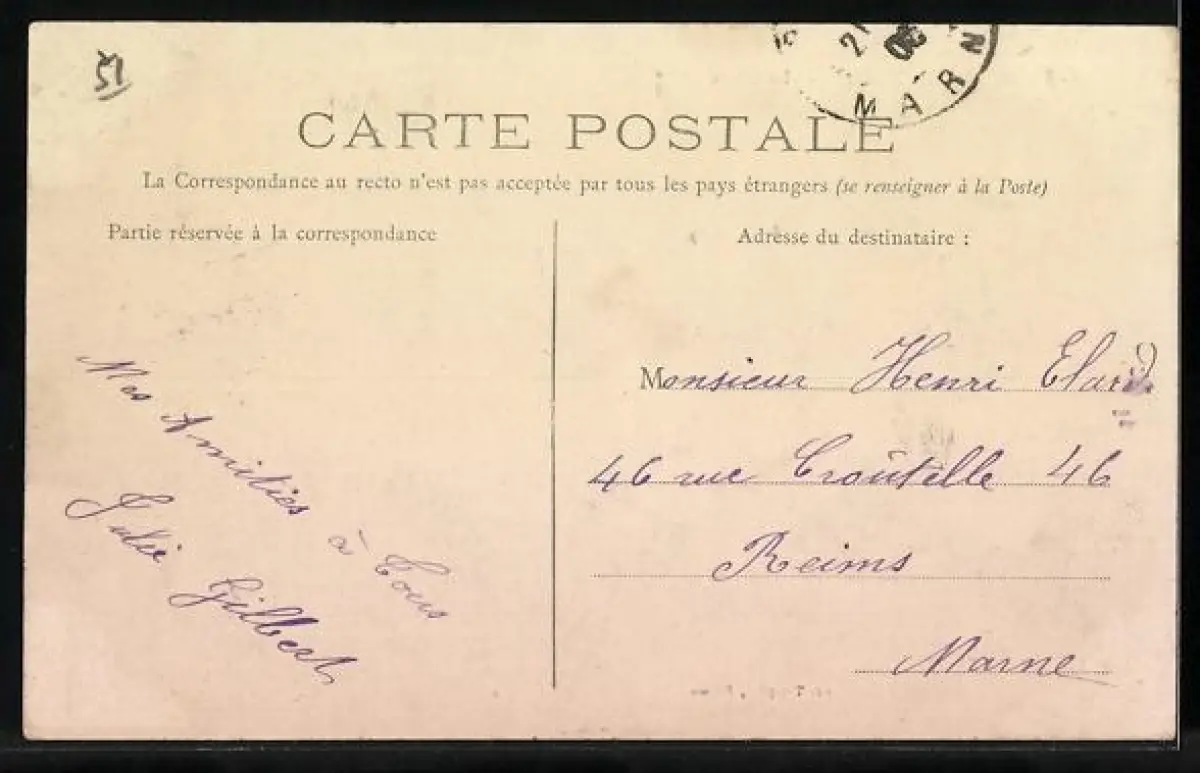 51
MARN
CARTE POSTALE
La Correspondance au recto n'est pas acceptée par tous les pays étrangers (se renseigner à la Poste)
Partie réservée à la correspondance
Mes Amitiés à Tous
Julie Gilbert
Adresse du destinataire :
Monsieur Henri
46 rue Croûtelle 46
Reims
Marne